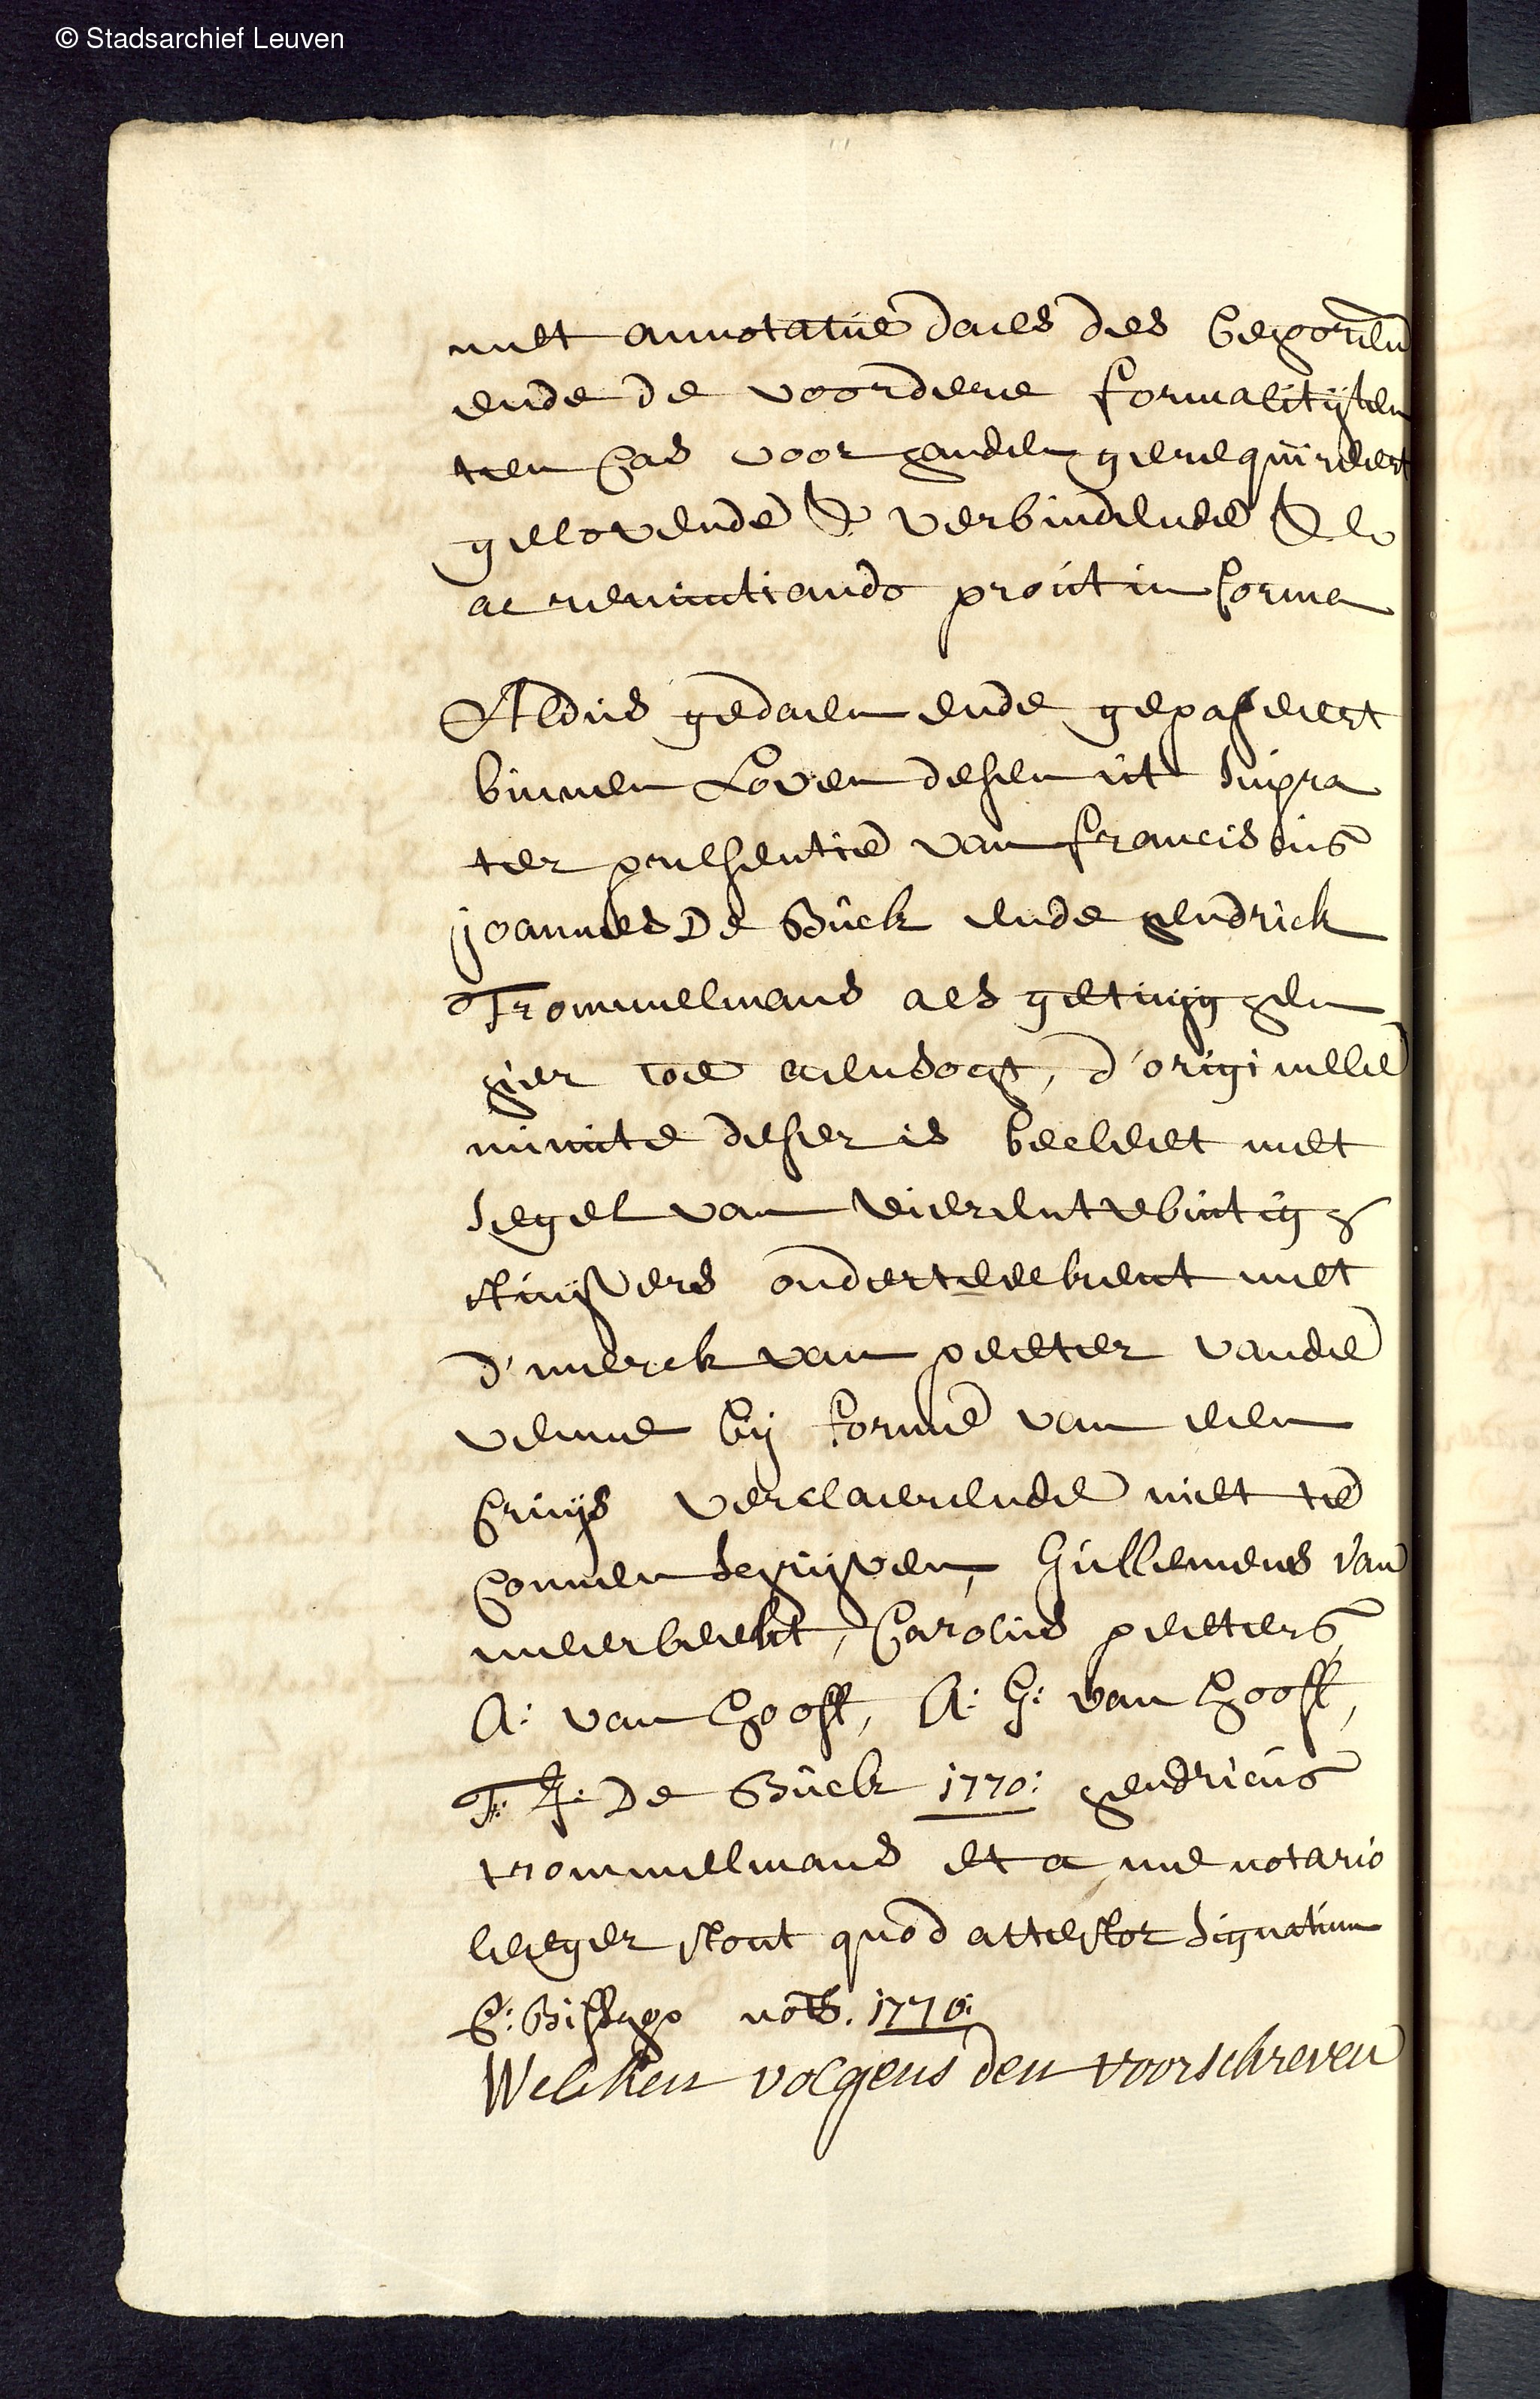 © Stadsarchief Leuven
met annotatie daer des behoorend
ende de voordere formalitijten
ten cas voor handen gerequireert
gelovende & verbindende &
ac renuntiando prout in forma
Aldus gedaen ende gepasseert
binnen Loven desen ut supra
ter presentie van Franciscus
joannes De Buck ende hendrick
Trommelmans als getuijghen
hier toe aensocht, d'originele
minute deser is becleet met
segel van vierentwintigh
stuijvers onderteeckent met
d'merck van peeter vande
venne bij forme van een
Cruijs verclaerende niet te
Connen schrijven, Guillemeus van
meerbeeck, Carolus peeters,
A: van hooff, A: G: van hooff,
F: J: De Buck 1770: hendricus
trommelmans et a me notario
leeger stont quod attestor signatum
nots. 1770:
Welcken volgens den voorschreven